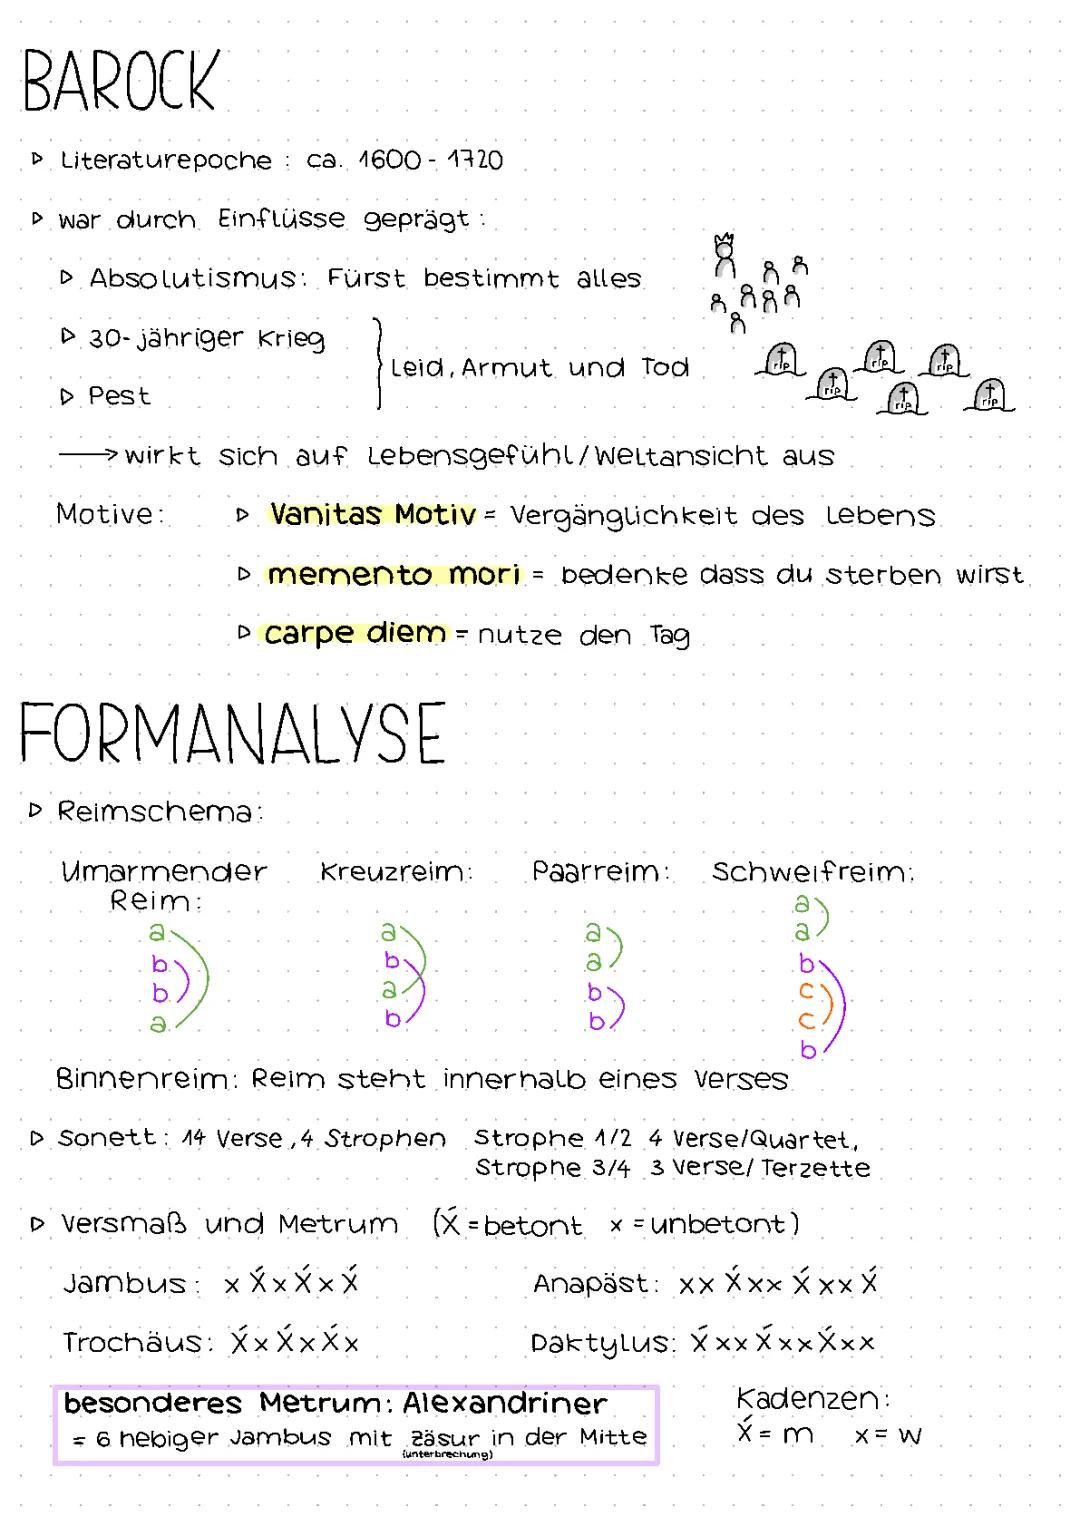 BAROCK
▷ Literaturepoche : ca. 1600 - 1720
▷ war durch Einflüsse geprägt :
▷ Absolutismus: Fürst bestimmt alles
▷ 30-jähriger Krieg
▷ Pest
Leid, Armut und Tod
rip rip rip rip rip rip
→ wirkt sich auf Lebensgefühl/Weltansicht aus
Motive: ▷ Vanitas Motiv = Vergänglichkeit des Lebens
▷ memento mori = bedenke dass du sterben wirst
▷ carpe diem = nutze den Tag
FORMANALYSE
▷ Reimschema:
Umarmender Reim:
a
b
b
a
Kreuzreim:
a
b
a
b
Paarreim:
a
a
b
b
Schweifreim:
a
a
b
c
c
b
Binnenreim: Reim steht innerhalb eines Verses
▷ Sonett: 14 Verse, 4 Strophen Strophe 1/2 4 Verse/Quartet,
Strophe 3/4 3 Verse/Terzette
▷ Versmaß und Metrum (X́ = betont x = unbetont)
Jambus: x X́ x X́ x X́ Anapäst: xx X́ xx X́ xx X́
Trochäus: X́ x X́ x X́ x Daktylus: X́ xx X́ xx X́ xx
besonderes Metrum: Alexandriner
= 6 hebiger Jambus mit Zäsur in der Mitte
(unterbrechung)
Kadenzen:
X́ = m x = w